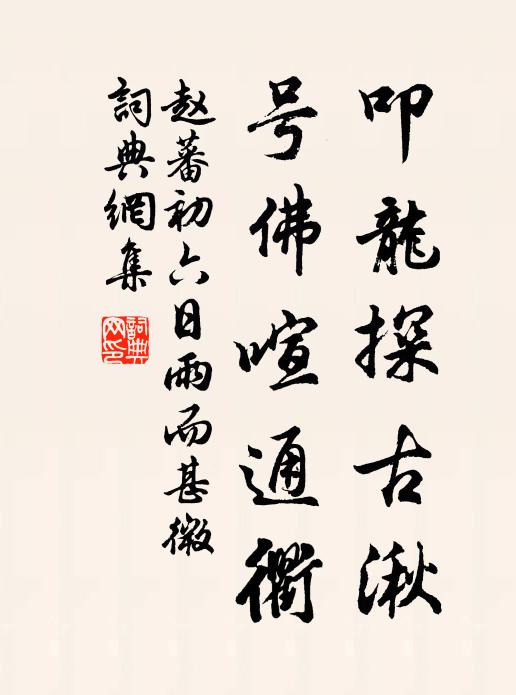 叩龍探古湫
号佛喧通衢
赵蕃初六日雨而甚微
詞典網集
詞典網印